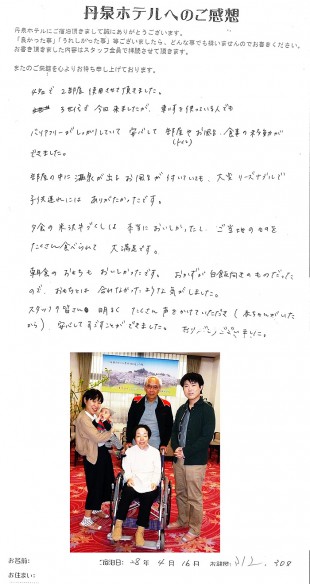 丹泉ホテルへのご感想
丹泉ホテルにご宿泊頂きまして誠にありがとうございます。
「良かった事」「うれしかった事」等ございましたら、どんな事でも構いませんのでお書きください。
お書き頂きました内容はスタッフ全員で拝読させて頂きます。
またのご来館を心よりお待ち申し上げております。
2部屋 使用させて頂きました。
3世代で 今回 来ましたが、車イスを使っている人でも
バリアフリーがしっかりしていて 安心して 部屋やお風呂、食事の移動が
(トイレ)
できました。
部屋の中に温泉が出る お風呂が 付いていても、大変 リーズナブルで
子供連れには ありがたかったです。
夕食の 米沢牛づくしは 本当に おいしかったし、ご当地のものを
たくさん食べられて 大満足です。
朝食の おもちも おいしかったです。 おかずが 白飯向きのものだった
ので、おもちとは 合わなかったような気がしました。
スタッフの皆さん 明るく たくさん 声をかけていただき (赤ちゃんがいた
から) 安心して すごすことができました。 ありがとうございました。
お名前:
ご宿泊日: 28 年 4 月 16 日 お部屋: 312, 308
お住まい: